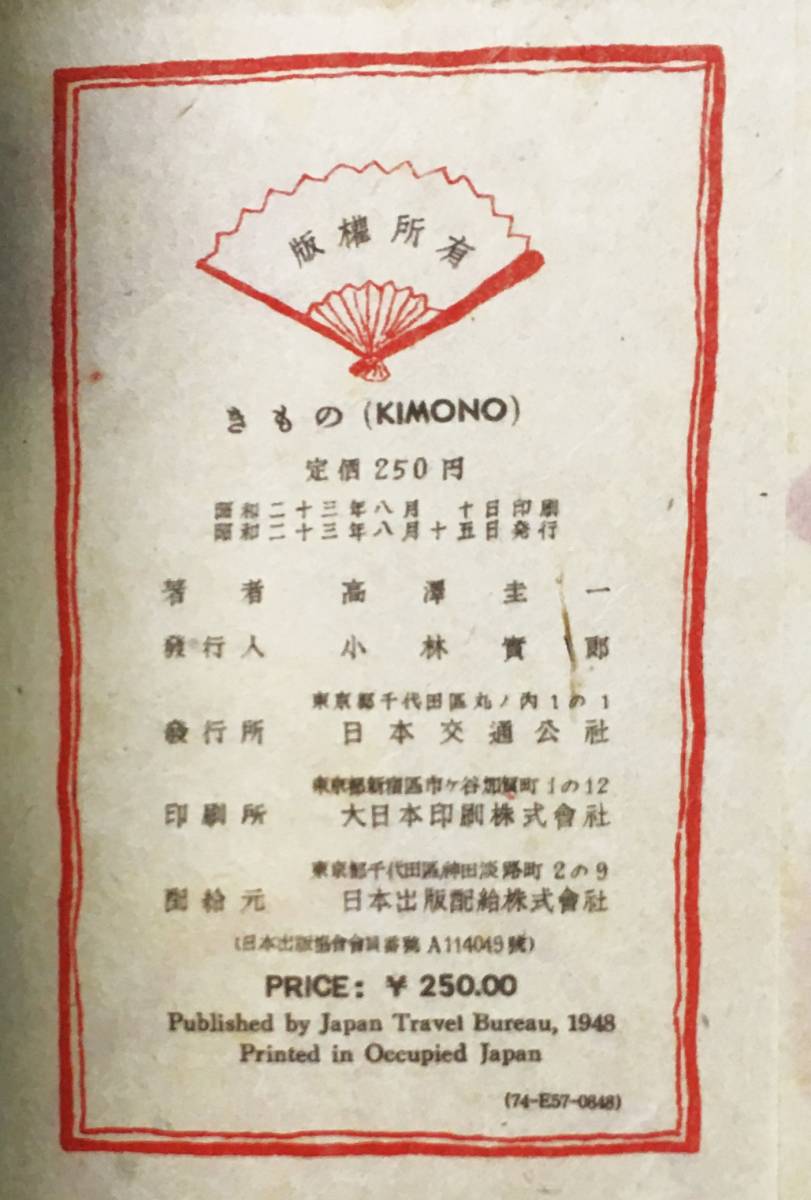 版權所有
きもの (KIMONO)
定価 250 円
昭和二十三年八月 十日印刷
昭和二十三年八月十五日発行
著者 高澤圭一
發行人 小林實郎
東京都千代田區丸ノ内1の1
發行所 日本交通公社
東京都新宿區市ケ谷加賀町1の12
印刷所 大日本印刷株式會社
東京都千代田區神田淡路町2の9
配給元 日本出版配給株式會社
(日本出版協會會員番號 A114049號)
PRICE: ¥ 250.00
Published by Japan Travel Bureau, 1948
Printed in Occupied Japan
(74-E57-0848)